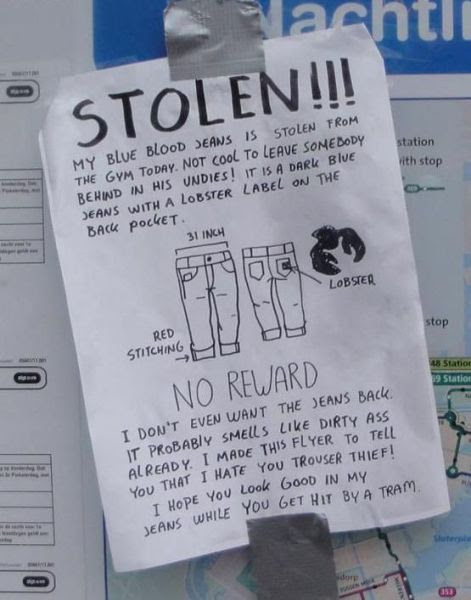 Nachtli
STOLEN!!!
MY BLUE BLOOD JEANS IS STOLEN FROM
THE GYM TODAY. NOT COOL TO LEAVE SOMEBODY
BEHIND IN HIS UNDIES! IT IS A DARK BLUE
JEANS WITH A LOBSTER LABEL ON THE
BACK POCKET.
31 INCH
LOBSTER
RED
STITCHING
NO REWARD
I DON'T EVEN WANT THE JEANS BACK.
IT PROBABLY SMELLS LIKE DIRTY ASS
ALREADY. I MADE THIS FLYER TO TELL
YOU THAT I HATE YOU TROUSER THIEF!
I HOPE YOU LOOK GOOD IN MY
JEANS WHILE YOU GET HIT BY A TRAM.
station
with stop
stop
48 Station
49 Station
353